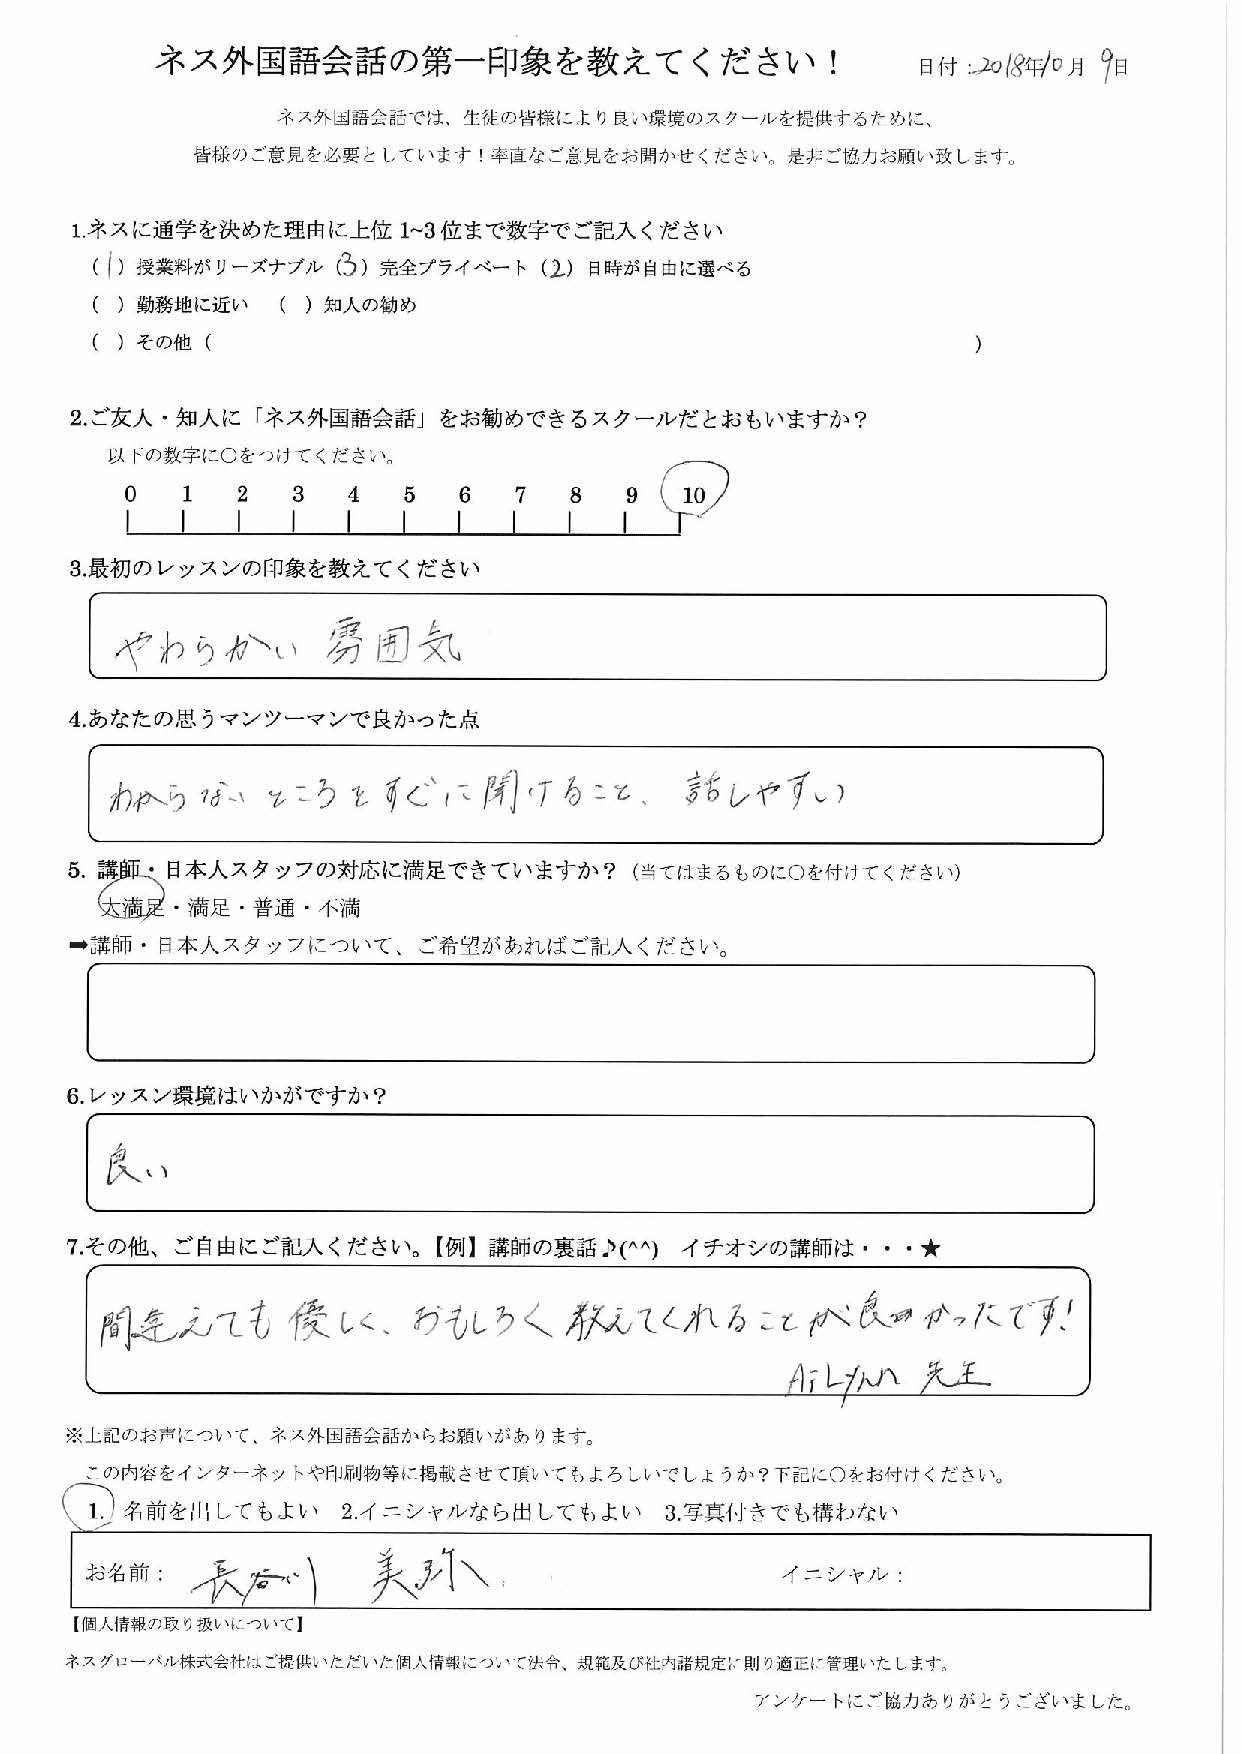 ネス外国語会話の第一印象を教えてください！ 日付：2018年10月9日
ネス外国語会話では、生徒の皆様により良い環境のスクールを提供するために、
皆様のご意見を必要としています！率直なご意見をお聞かせください。是非ご協力お願い致します。
1.ネスに通学を決めた理由に上位1~3位まで数字でご記入ください
（1）授業料がリーズナブル（3）完全プライベート（2）日時が自由に選べる
（ ）勤務地に近い （ ）知人の勧め
（ ）その他（ ）
2.ご友人・知人に「ネス外国語会話」をお勧めできるスクールだとおもいますか？
以下の数字に〇をつけてください。
0 1 2 3 4 5 6 7 8 9 10
3.最初のレッスンの印象を教えてください
やわらかい雰囲気
4.あなたの思うマンツーマンで良かった点
わからないところをすぐに聞けること、話しやすい
5. 講師・日本人スタッフの対応に満足できていますか？（当てはまるものに〇を付けてください）
大満足・満足・普通・不満
➡講師・日本人スタッフについて、ご希望があればご記入ください。
6.レッスン環境はいかがですか？
良い
7.その他、ご自由にご記入ください。【例】講師の裏話♪(^^) イチオシの講師は・・・★
間違えても優しく、おもしろく教えてくれることが良かったです！
AiLynn 先生
※上記のお声について、ネス外国語会話からお願いがあります。
この内容をインターネットや印刷物等に掲載させて頂いてもよろしいでしょうか？下記に〇をお付けください。
1. 名前を出してもよい 2.イニシャルなら出してもよい 3.写真付きでも構わない
お名前： 長谷川 美弥 イニシャル：
【個人情報の取り扱いについて】
ネスグローバル株式会社はご提供いただいた個人情報について法令、規範及び社内諸規定に則り適正に管理いたします。
アンケートにご協力ありがとうございました。